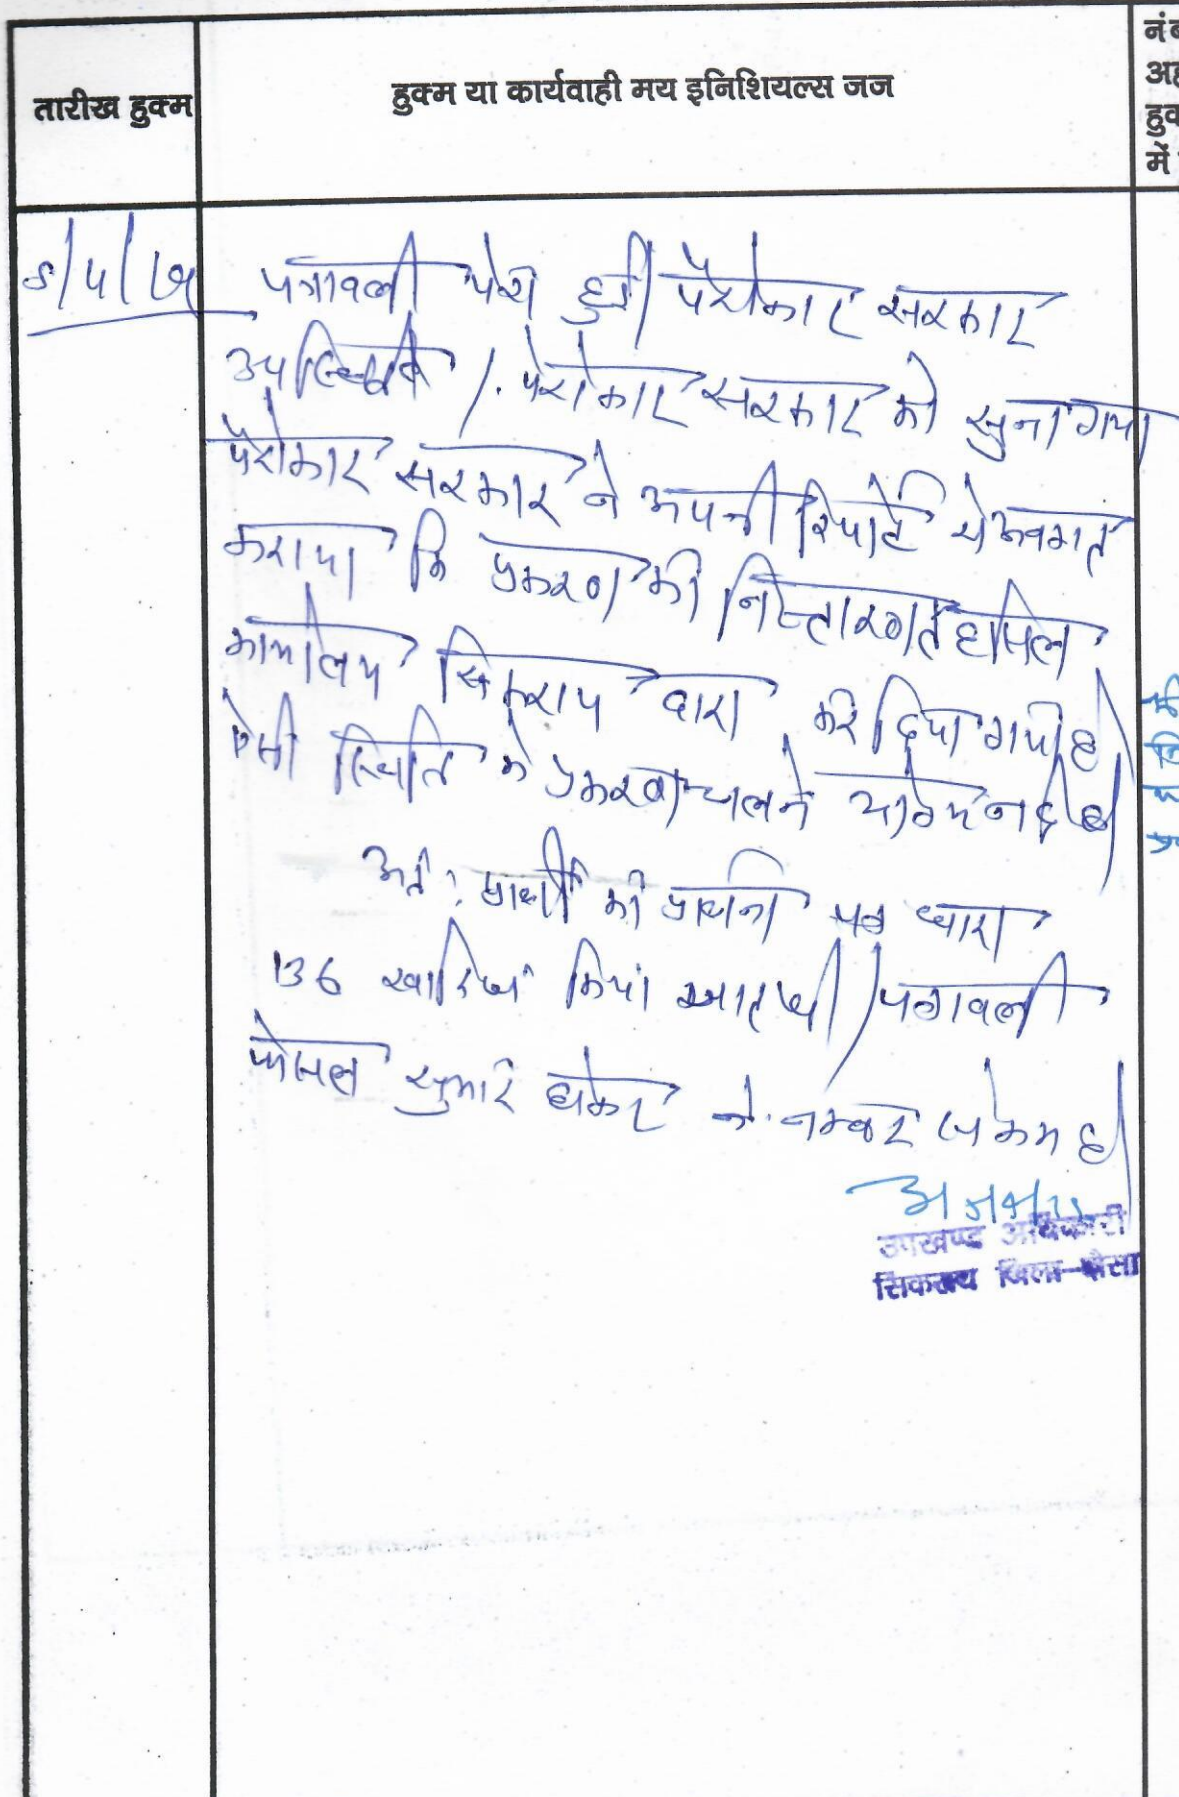 तारीख हुक्म
हुक्म या कार्यवाही मय इनिशियल्स जज
अह
में
पत्रावली पेश हुई। पैरोकार सरकार
उपस्थित।. पैरोकार सरकार को सुना गया
पैरोकार सरकार ने अपनी रिपोर्ट से अवगत
कराया कि प्रकरण को निस्तारण तहसिल
कार्यालय सिकराय द्वारा कर दिया गया है।
ऐसी स्थिति में प्रकरण चलने योग्य नही है।
अतः प्रार्थी का प्रार्थना पत्र धारा
136 खारिज किया जाता है। पत्रावली
फैसल सुमार होकर नम्बर से कम हो।
उपखण्ड अधिकारी
सिकराय जिला-दौसा